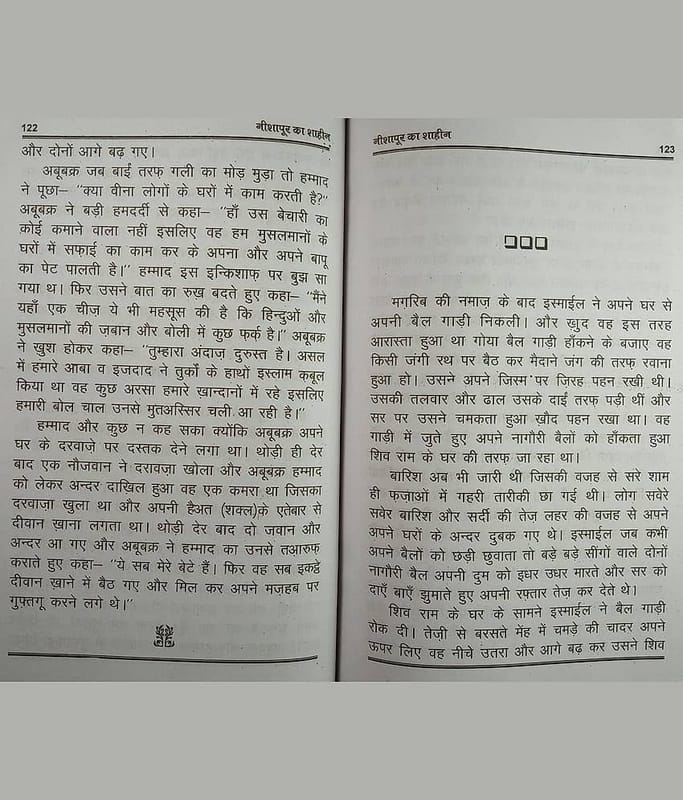 122
नीशापूर का शाहीन
और दोनों आगे बढ़ गए।
अबूबक्र जब बाईं तरफ़ गली का मोड़ मुड़ा तो हम्माद
ने पूछा– "क्या वीना लोगों के घरों में काम करती है?"
अबूबक्र ने बड़ी हमदर्दी से कहा– "हाँ उस बेचारी का
कोई कमाने वाला नहीं इसलिए वह हम मुसलमानों के
घरों में सफ़ाई का काम कर के अपना और अपने बापू
का पेट पालती है।" हम्माद इस इन्किशाफ़ पर बुझ सा
गया था। फिर उसने बात का रुख़ बदते हुए कहा– "मैंने
यहाँ एक चीज़ ये भी महसूस की है कि हिन्दुओं और
मुसलमानों की ज़बान और बोली में कुछ फ़र्क़ है।" अबूबक्र
ने खुश होकर कहा– "तुम्हारा अंदाज़ दुरुस्त है। असल
में हमारे आबा व इजदाद ने तुर्कों के हाथों इस्लाम क़बूल
किया था वह कुछ अरसा हमारे ख़ान्दानों में रहे इसलिए
हमारी बोल चाल उनसे मुतअस्सिर चली आ रही है।"
हम्माद और कुछ न कह सका क्योंकि अबूबक्र अपने
घर के दरवाज़े पर दस्तक देने लगा था। थोड़ी ही देर
बाद एक नौजवान ने दरावज़ा खोला और अबूबक्र हम्माद
को लेकर अन्दर दाखिल हुआ वह एक कमरा था जिसका
दरवाज़ा खुला था और अपनी हैअत (शक्ल)के़ एतेबार से
दीवान ख़ाना लगता था। थोड़ी देर बाद दो जवान और
अन्दर आ गए और अबूबक्र ने हम्माद का उनसे तआरुफ़
कराते हुए कहा– "ये सब मेरे बेटे हैं। फिर वह सब इकट्ठे
दीवान ख़ाने में बैठ गए और मिल कर अपने मज़हब पर
गुफ़्तगू करने लगे थे।"
नीशापूर का शाहीन
123
मग़रिब की नमाज़ के बाद इस्माईल ने अपने घर से
अपनी बैल गाड़ी निकली। और खुद वह इस तरह
आरास्ता हुआ था गोया बैल गाड़ी हाँकने के बजाए वह
किसी जंगी रथ पर बैठ कर मैदाने जंग की तरफ़ रवाना
हुआ हो। उसने अपने जिस्म पर ज़िरह पहन रखी थी।
उसकी तलवार और ढाल उसके दाईं तरफ़ पड़ी थीं और
सर पर उसने चमकता हुआ ख़ौद पहन रखा था। वह
गाड़ी में जुते हुए अपने नागौरी बैलों को हाँकता हुआ
शिव राम के घर की तरफ़ जा रहा था।
बारिश अब भी जारी थी जिसकी वजह से सरे शाम
ही फज़ाओं में गहरी तारीकी छा गई थी। लोग सवेरे
सवेर बारिश और सर्दी की तेज़ लहर की वजह से अपने
अपने घरों के अन्दर दुबक गए थे। इस्माईल जब कभी
अपने बैलों को छड़ी छुवाता तो बड़े बड़े सींगों वाले दोनों
नागौरी बैल अपनी दुम को इधर उधर मारते और सर को
दाएँ बाएँ झुमाते हुए अपनी रफ़्तार तेज़ कर देते थे।
शिव राम के घर के सामने इस्माईल ने बैल गाड़ी
रोक दी। तेज़ी से बरसते मेंह में चमड़े की चादर अपने
ऊपर लिए वह नीचे उतरा और आगे बढ़ कर उसने शिव